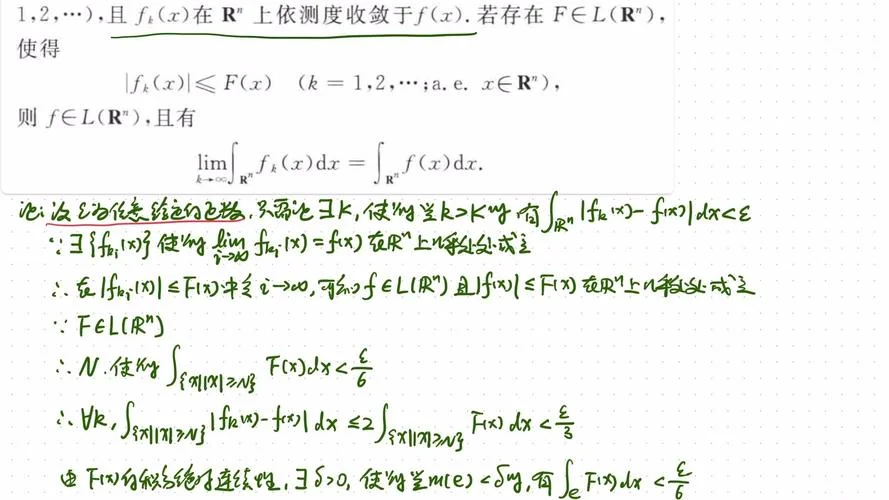 1,2,⋯),且 fₖ(x)在 Rⁿ 上依测度收敛于f(x).若存在 F∈L(Rⁿ),
使得
|fₖ(x)|≤F(x) (k=1,2,⋯;a.e. x∈Rⁿ),
则 f∈L(Rⁿ),且有
lim_{k→∞}∫_{Rⁿ} fₖ(x)dx=∫_{Rⁿ} f(x)dx.
证:设ε为任意给定的正数,只需证∃K,使得当k>K时,有∫_{ℝⁿ}|fₖ(x)-f(x)|dx<ε
∵∃{f_{kᵢ}(x)}使得 lim_{i→∞} f_{kᵢ}(x)=f(x) 在ℝⁿ上几乎处处成立
∴在|f_{kᵢ}(x)|≤F(x)中令i→∞,可知f∈L(ℝⁿ)且|f(x)|≤F(x)在ℝⁿ上几乎处处成立
∵F∈L(ℝⁿ)
∴N.使得∫_{{x||x|≥N}} F(x)dx<ε/6
∴∀k,∫_{{x||x|≥N}}|fₖ(x)-f(x)|dx≤2∫_{{x||x|≥N}} F(x)dx<ε/3
由F(x)的积分绝对连续性,∃δ>0,使得当m(e)<δ时,有∫_e F(x)dx<ε/6